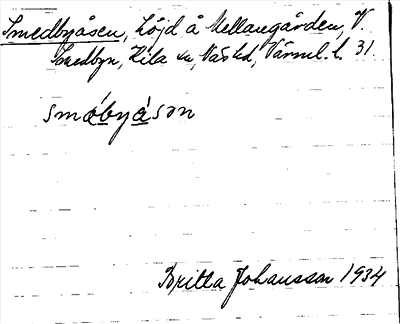 Smedbyåsen, höjd å Mellangården, V.
Smedbyn, Kila sn, Näs hd, Värml. l. 31.
småbyåsən
Britta Johansson 1934